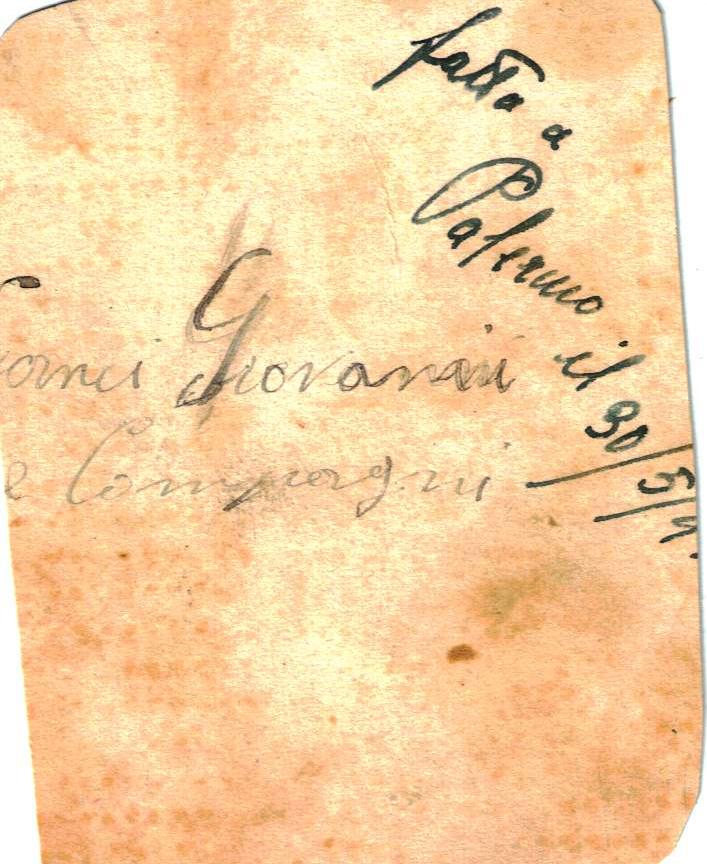 fatto a
Palermo il 30/5/4
Giovanni
e Compagni